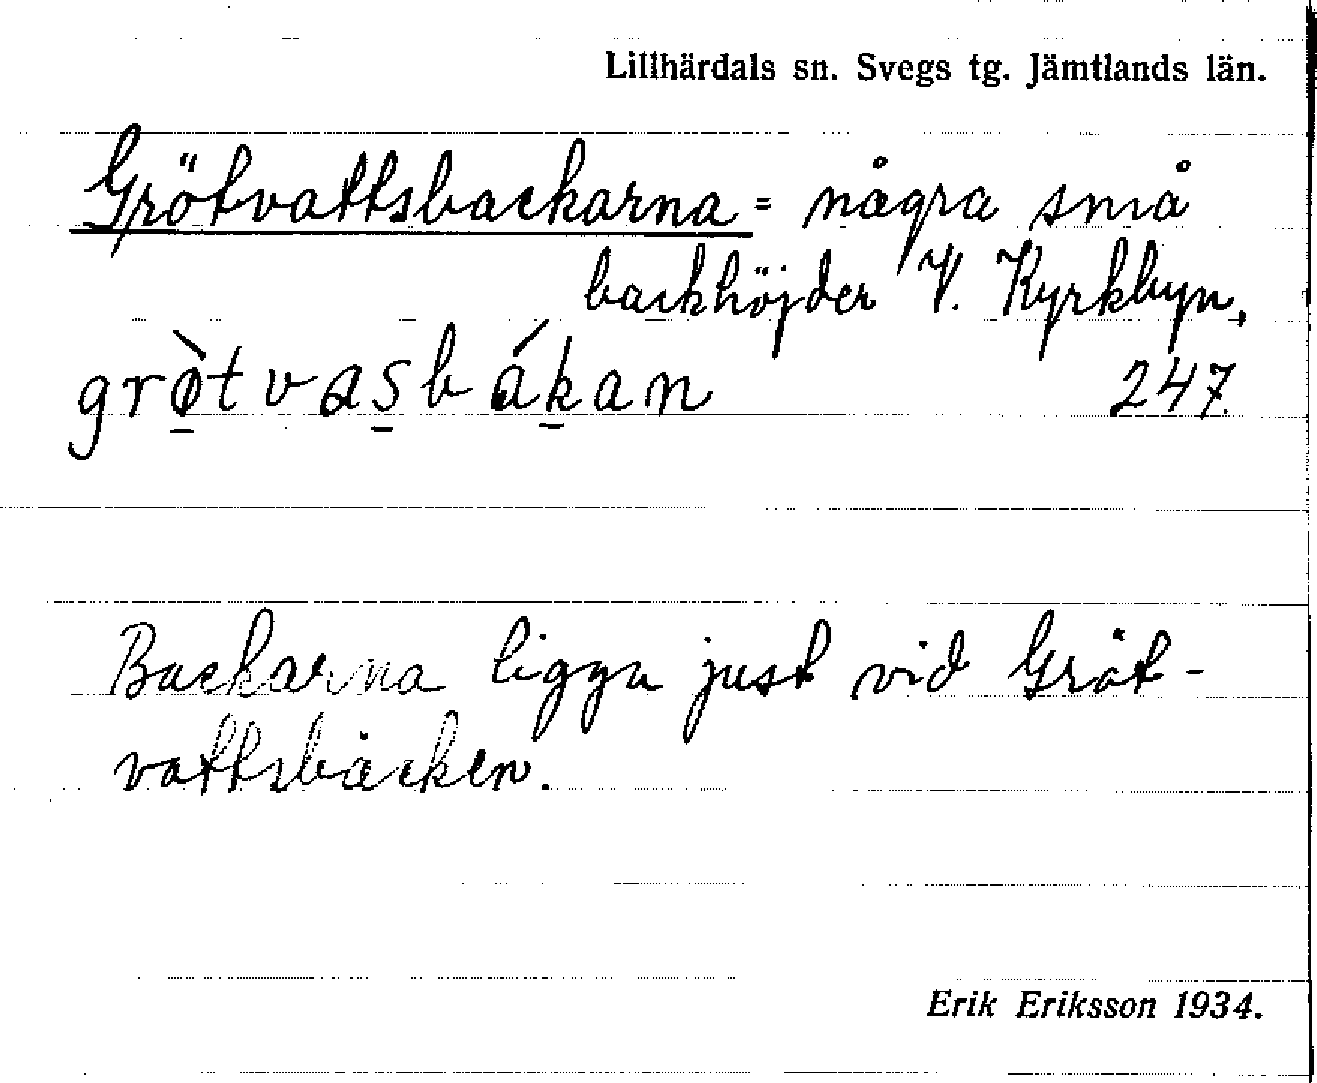 Lillhärdals sn. Svegs tg. Jämtlands län.
Grötvattsbackarna = några små
backhöjder V. Kyrkbyn,
grø̀tvasbákan 247.
Backarna ligga just vid Gröt-
vattsbäcken.
Erik Eriksson 1934.